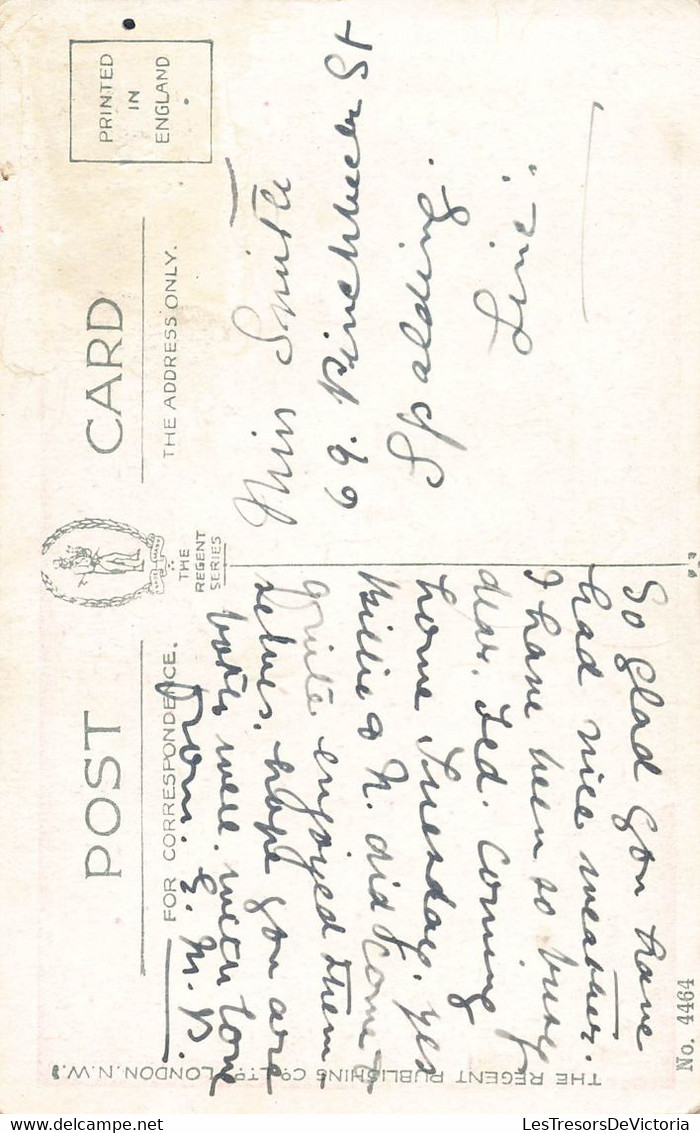 POST CARD
THE REGENT SERIES
PRINTED
IN
ENGLAND
FOR CORRESPONDENCE.
THE ADDRESS ONLY.
So glad you have
had nice weather.
I have been so busy
dear. Ted. Coming
home Tuesday. yes
Billie & N. did come &
quite enjoyed them
selves. hope you are
both well. with love
From. E. M. B.
Miss Smith
69. Winchester St
THE REGENT PUBLISHING Co LTD LONDON. N.W.
No. 4464
LesTresorsDeVictoria